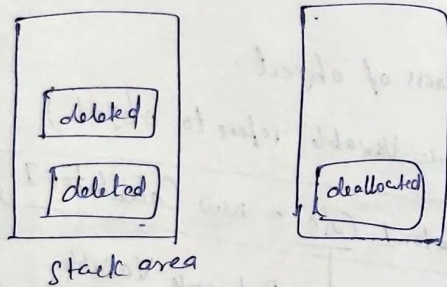 deleted
deleted
deallocated
Stack area